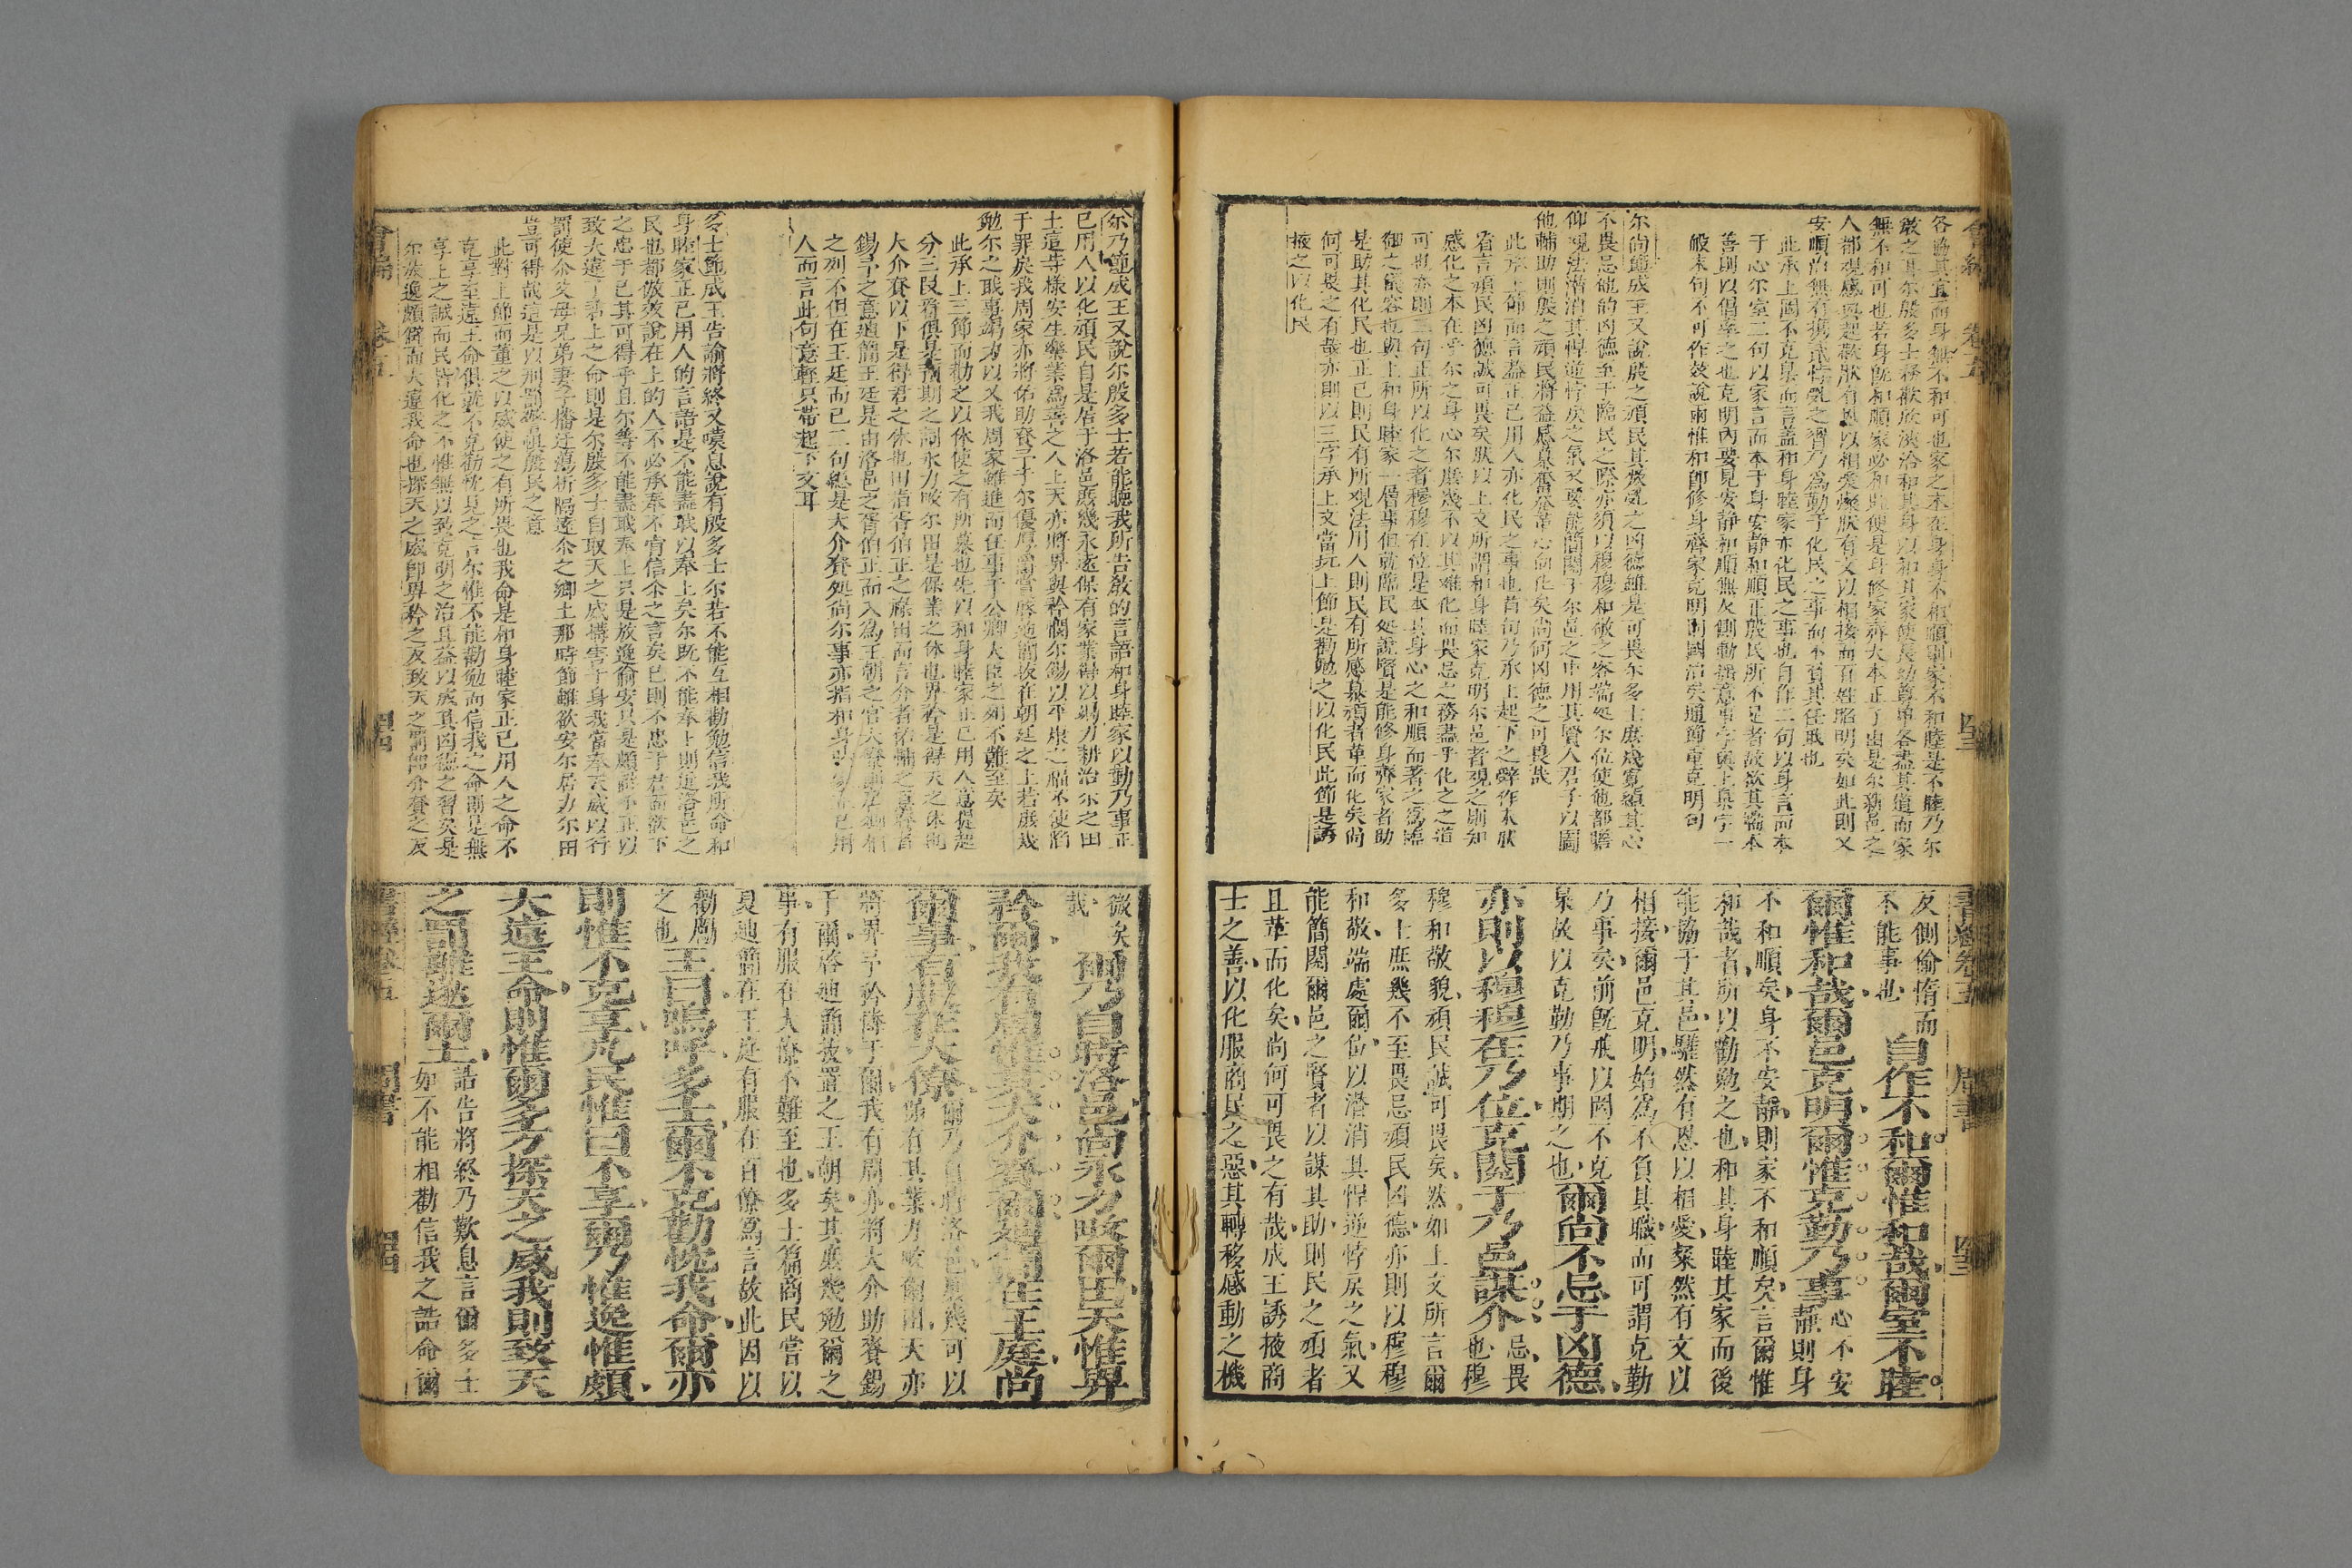 各盡其宜而身無不和可也家之本在身身不和順則家不和睦是不睦乃尔
啟之耳尔殷多士務歡欣浹洽和其身以和其家使長幼尊卑各盡其道而家
無不和可也若身旣和順家必和睦便是身修家齊大本正了由是尔新邑之
人都觀感興起歡然有恩以相愛燦然有文以相接而百姓昭明矣如此則又
安順治無有擾亂之習乃為勤于化民之事而不負其任職也
此承上圖不克臬而言蓋和身睦家亦化民之事也自作二句以身言而本
于心尔室二句以家言而本于身安靜和順正殷民所不足者故欲其端本
善則以倡率之也克明內要見安靜和順無反側動搖意事字與上臬字一
般末句不可作效說爾惟和卽修身齊家克明則國治矣通節重克明句
尔尚節成王又說殷之頑民其叛亂之凶德雖是可畏尔多士庶幾寬綽其心
不畏忌他的凶德至于臨民之際亦須以穆穆和敬之容端処尔位使他都瞻
仰觀法潛消其悍逆悖戾之氣又要能簡閱于尔邑之中用其賢人君子以圖
他輔助則殷之頑民將益感慕奮發革心向化矣尚何凶德之可畏哉
此承上節而言蓋正己用人亦化民之事也首句乃承上起下之辭作本狀
省言頑民凶德誠可畏矣狀以上文所謂和身睦家克明尔邑者觀之則知
感化之本在乎尔之身心尔庶幾不以其难化而畏忌之務盡乎化之之道
可也亦則三句正所以化之者穆穆在位是本其身心之和順而著之為臨
御之儀容也與上和身睦家一僣事但就臨民処說賢是能修身齊家者助
是助其化民也正己則民有所覌法用人則民有所感慕頑者革而化矣尚
何可畏之有哉亦則以三字承上文當玩上節是勸勉之以化民此節是誘
掖之以化民
反側偷惰而
不能事也
自作不和爾惟和哉爾室不睦
爾惟和哉爾邑克明爾惟克勤乃事心不安
靜則身
不和順矣身不安靜則家不和順矣言爾惟
和哉者所以勸勉之也和其身睦其家而後
能協于其邑驩然有恩以相愛粲然有文以
相接爾邑克明始為不負其職而可謂克勤
乃事矣前旣戒以罔不克
臬故以克勤乃事期之也爾尚不忌于凶德
亦則以穆穆在乃位克閱于乃邑謀介忌畏
也穆
穆和敬貌頑民誠可畏矣然如上文所言爾
多士庶幾不至畏忌頑民凶德亦則以穆穆
和敬端處爾位以潜消其悍逆悖戾之氣又
能簡閱爾邑之賢者以謀其助則民之頑者
且革而化矣尚何可畏之有哉成王誘掖商
士之善以化服商民之惡其轉移感動之機
尔乃節成王又說尔殷多士若能聽我所告敎的言語和身睦家以勤乃事正
已用人以化頑民自是居于洛邑庶幾永遠保有家業得以竭力耕治尔之田
土這等樣安生樂業為善之人上天亦將畀與矜憫尔錫以平康之福不使陷
于罪戾我周家亦將佑助賚予于尔優厚當啓迪簡拔在朝廷之上若庶幾
勉尔之職事竭力以乂我周家雖進而任事于公卿大臣之列不難至矣
此承上三節而勸之以休使之有所慕也先以和身睦家正己用人意提起
分三段看俱是預期之詞永力畋尔田是保業之休也畀矜是得天之休周
大介賚以下是得君之休也田治者伯正之祿田而言介者佑輔之意賚者
錫予之意迪簡王廷是由洛邑之胥伯正而入為王朝之官大僚則公卿相
之列不但在王廷而已二句總是大介賚処尚尔事亦指和身睦家正己用
人而言此句意輕只帶起下文耳
多士節成王告諭將終又嘆息說有殷多士尔若不能互相勸勉信我所命和
身睦家正己用人的言語是不能盡職以奉上矣尔既不能奉上則這洛邑之
民也都倣效說在上的人不必承奉不肯信尔之言矣己則不忠于君而欲下
之忠于己其可得乎且尔等不能盡職奉上只是放逸偷安只是頗僻不正以
致大違了君上之命則是尔殷多士自取天之威搆害于身我當奉天威以行
罰使尔父母兄弟妻子播迁蕩析隔遠尔之鄉土那時節雖欲安尔居力尔田
豈可得哉這是以刑罰警惧殷民之意
此對上節而董之以威使之有所畏也我命是和身睦家正己用人之命不
克享至違王命俱就不克勸忱見之言尔惟不能勸勉而信我之命則是無
享上之誠而民皆化之不惟無以致克明之治且益以成其凶德之習矣是
尔放逸頗僻而大違我命也探天之威卽畀矜之反致天之罰卽介賚之反
微矣
哉
爾乃自時洛邑尚永力畋爾田天惟畀
矜爾我有周惟其大介賚爾迪簡在王庭尚
爾事有服在大僚爾乃自時洛邑庶幾可以
保有其業力畋爾田天亦
將畀予矜憐于爾我有周亦將大介助賚錫
于爾啓迪簡拔置之王朝矣其庶幾勉爾之
事有服在大僚不難至也多士篇商民嘗以
夏迪簡在王庭有服在百僚為言故此因以
勸勵
之也
王曰嗚呼多士爾不克勸忱我命爾亦
則惟不克享凡民惟曰不享爾乃惟逸惟頗
大遠王命則惟爾多方探天之威我則致天
之罰離逖爾土誥告將終乃歎息言爾多士
如不能相勸信我之誥命爾
會編 卷五 四三
書經卷五 周書 四三
會編 卷五 四四
書經卷五 周書 四四